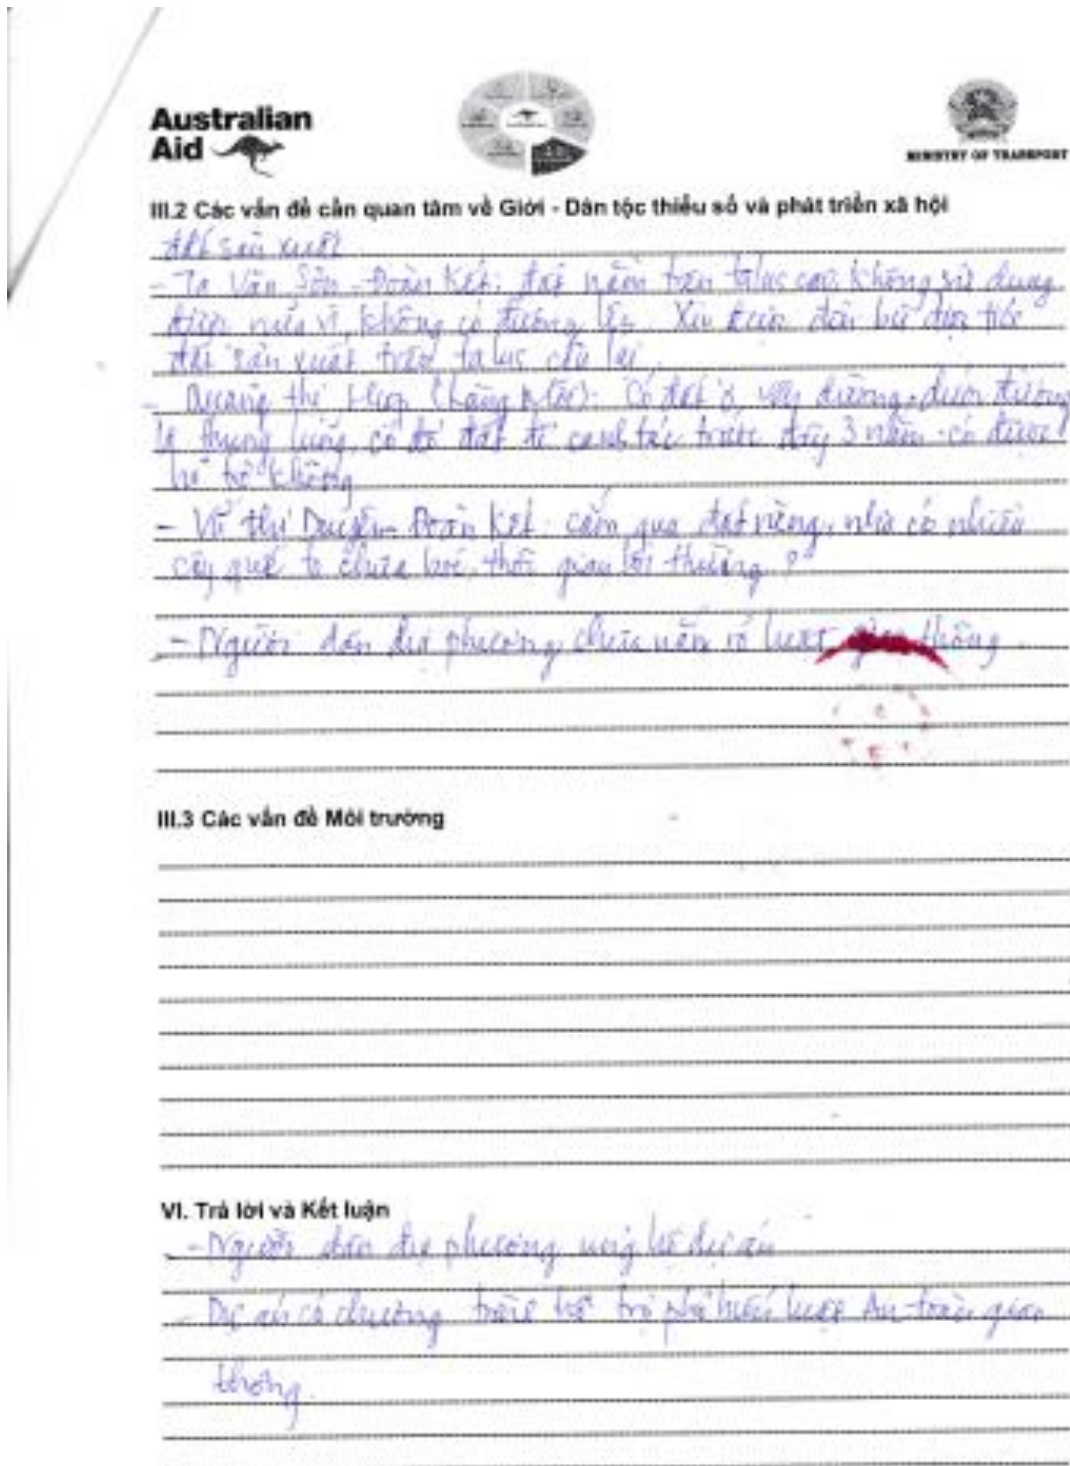 Australian
Aid
MINISTRY OF TRANSPORT
III.2 Các vấn đề cần quan tâm về Giới - Dân tộc thiểu số và phát triển xã hội
đất sản xuất
- Tạ Văn Sơn - Đoàn Kết: đất nằm trên talus cao, không sử dụng
được nữa vì không có đường lên. Xin được đền bù diện tích
đất sản xuất trên talus còn lại.
- thị Hợp: Có đất ở ven đường, dưới đường
là thung lũng, có đổ đất để canh tác trước đây 3 năm có được
hỗ trợ không
- Vũ thị Duyên - Đoàn Kết: cắm qua đất riêng, nhà có nhiều
cây quế to chưa thời gian bồi thường?
- Người dân địa phương chưa nắm rõ luật giao thông
III.3 Các vấn đề Môi trường
VI. Trả lời và Kết luận
- Người dân địa phương ủng hộ dự án
- Dự án có chương trình hỗ trợ phổ biến luật An toàn giao
thông.